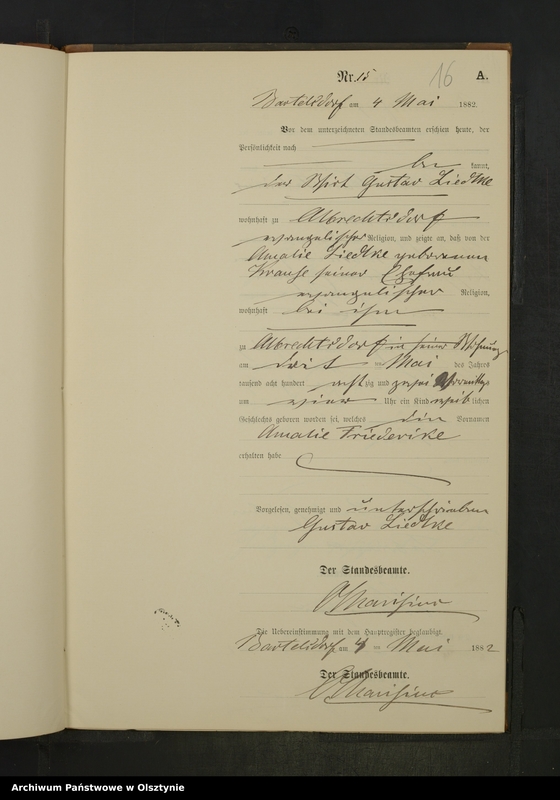 Nr. 15 16 A.
Bartelsdorf am 4 Mai 1882.
Vor dem unterzeichneten Standesbeamten erschien heute, der
Persönlichkeit nach
be kannt,
der Wirt Gustav Liedtke
wohnhaft zu Albrechtsdorf
evangelischer Religion, und zeigte an, daß von der
Amalie Liedtke geborenen
Krause seiner Ehefrau
evangelischer Religion,
wohnhaft bei ihm
zu Albrechtsdorf in seiner Wohnung
am drit ten Mai des Jahres
tausend acht hundert acht zig und zwei Vormittags
um vier Uhr ein Kind weib lichen
Geschlechts geboren worden sei, welches die Vornamen
Amalie Friederike
erhalten habe
Vorgelesen, genehmigt und unterschrieben
Gustav Liedtke
Der Standesbeamte.
Die Uebereinstimmung mit dem Hauptregister beglaubigt.
Bartelsdorf am 4 ten Mai 1882
Der Standesbeamte.
Archiwum Państwowe w Olsztynie